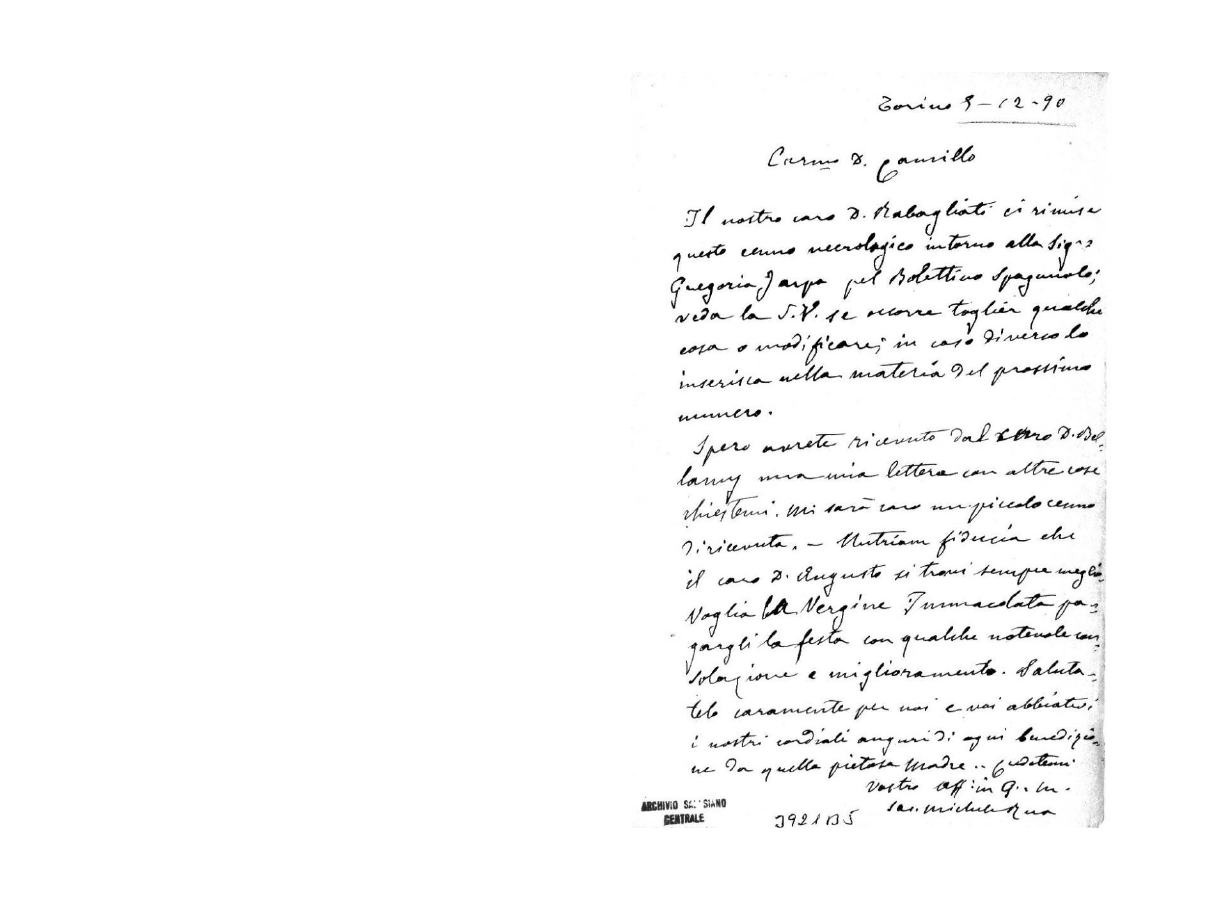 Torino 5-12-90
Carmo D. Camillo
Il nostro caro D. Rabagliati ci rimise
questo cenno necrologico intorno alla Sigra
Gregoria Jarpa pel Bolettino Spagnuolo;
veda la S.V. se occorre toglier qualche
cosa o modificare; in caso diverso lo
inserisca nella materia del prossimo
numero.
Spero avrete ricevuto dal caro D. Bel-
lamy una mia lettera con altre cose
chiestemi. Mi sarà caro un piccolo cenno
di ricevuta. – Nutriam fiducia che
il caro D. Augusto si trovi sempre meglio.
Voglia la Vergine Immacolata pa-
gargli la festa con qualche notevole con-
solazione e miglioramento. Saluta-
telo caramente per noi e voi abbiatevi
i nostri cordiali auguri di ogni benedizio-
ne da quella pietosa Madre. – Credetemi
Vostro aff. in G. e M.
Sac. Michele Rua
ARCHIVIO SALESIANO
CENTRALE
3921B5